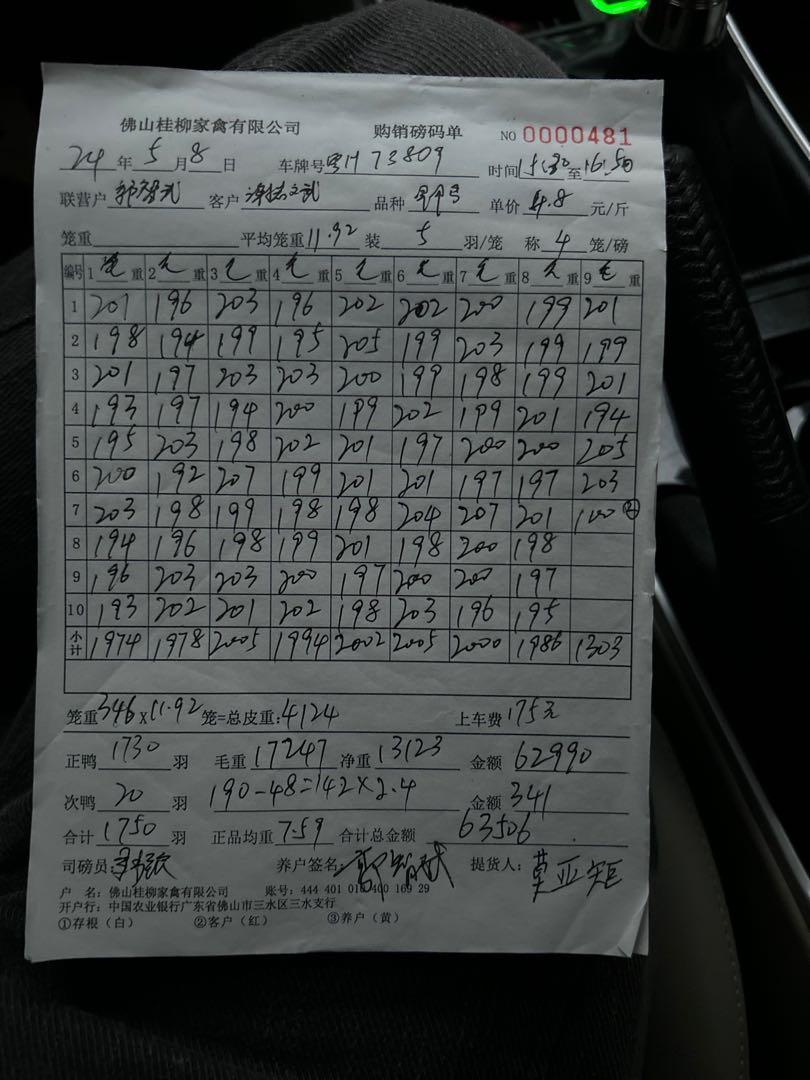 佛山桂柳家禽有限公司 购销磅码单 NO 0000481
24 年 5 月 8 日 车牌号 粤H73809 时间 15:30 至 16:50
联营户 客户 品种 单价 4.8 元/斤
笼重 平均笼重 11.92 装 5 羽/笼 称 4 笼/磅
编号 1 毛 重 2 毛 重 3 毛 重 4 毛 重 5 毛 重 6 毛 重 7 毛 重 8 毛 重 9 毛 重
1 201 196 203 196 202 202 200 199 201
2 198 194 199 195 205 199 203 199 199
3 201 197 203 203 200 199 198 199 201
4 193 197 194 200 199 202 199 201 194
5 195 203 198 202 201 197 200 200 205
6 200 192 207 199 201 201 197 197 203
7 203 198 199 198 198 204 207 201 100 ②
8 194 196 198 199 201 198 200 198
9 196 203 203 200 197 200 200 197
10 193 202 201 202 198 203 196 195
小计 1974 1978 2005 1994 2002 2005 2000 1986 1303
笼重 346 x 11.92 笼=总皮重: 4124 上车费 175元
正鸭 1730 羽 毛重 17247 净重 13123 金额 62990
次鸭 20 羽 190-48=142×2.4 金额 341
合计 1750 羽 正品均重 7.59 合计总金额 63506
司磅员: 养户签名: 提货人: 莫亚矩
户 名: 佛山桂柳家禽有限公司 账号: 444 401 010 400 169 29
开户行: 中国农业银行广东省佛山市三水区三水支行
①存根(白) ②客户(红) ③养户(黄)